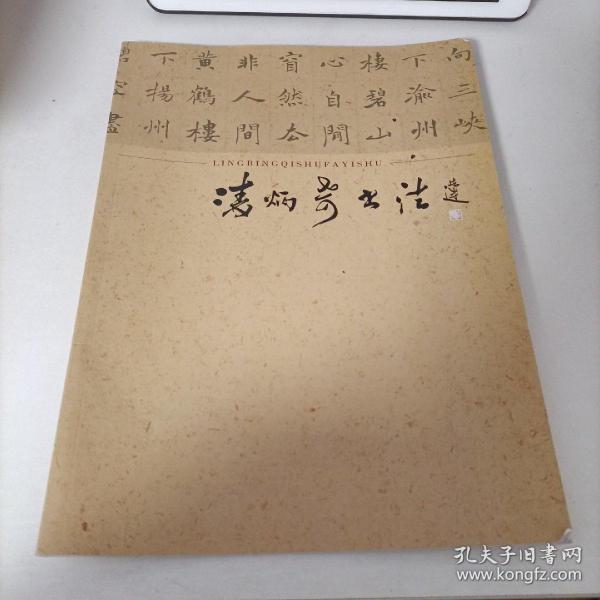 向三峽
下渝州
棲碧山
心自閒
窅然去
非人間
黄鶴樓
下揚州
碧空盡
LINGBINGQISHUFAYISHU
凌炳奇书法
孔夫子旧书网
www.kongfz.com